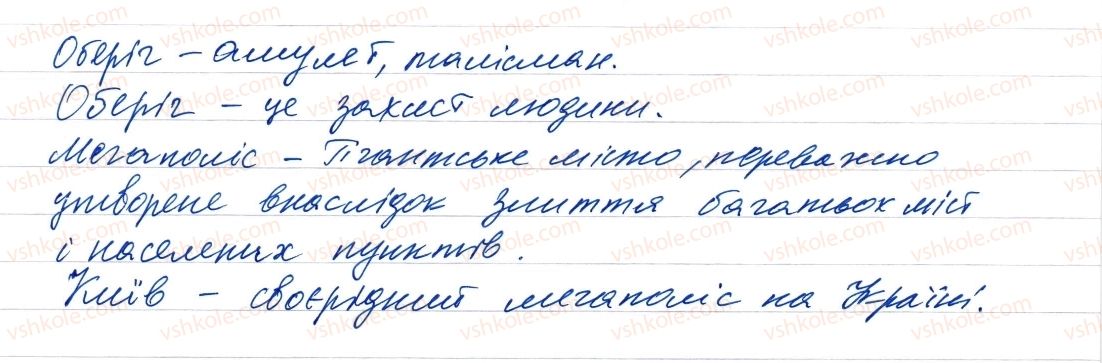 Оберіг – амулет, талісман.
Оберіг – це захист людини.
Мегаполіс – Гігантське місто, переважно
утворене внаслідок злиття багатьох міст
і населених пунктів.
Київ – своєрідний мегаполіс на Україні.